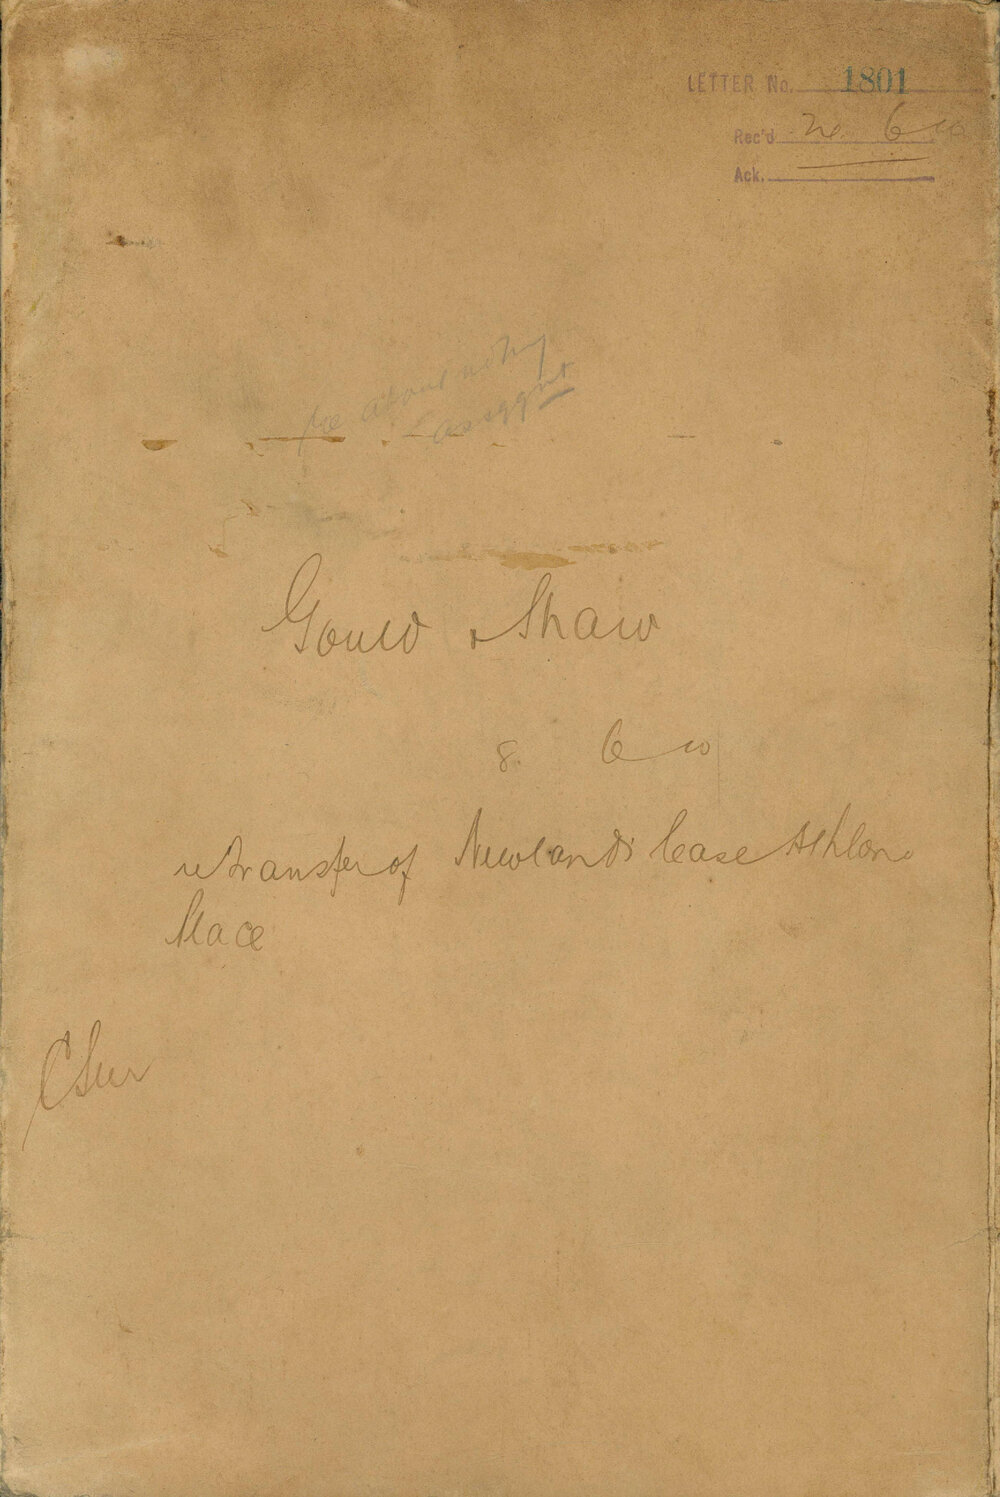 LETTER No. 1801
Rec'd
Ack.
Gould & Shaw
8 6 10
re transfer of Newlands lease Athlone
Place